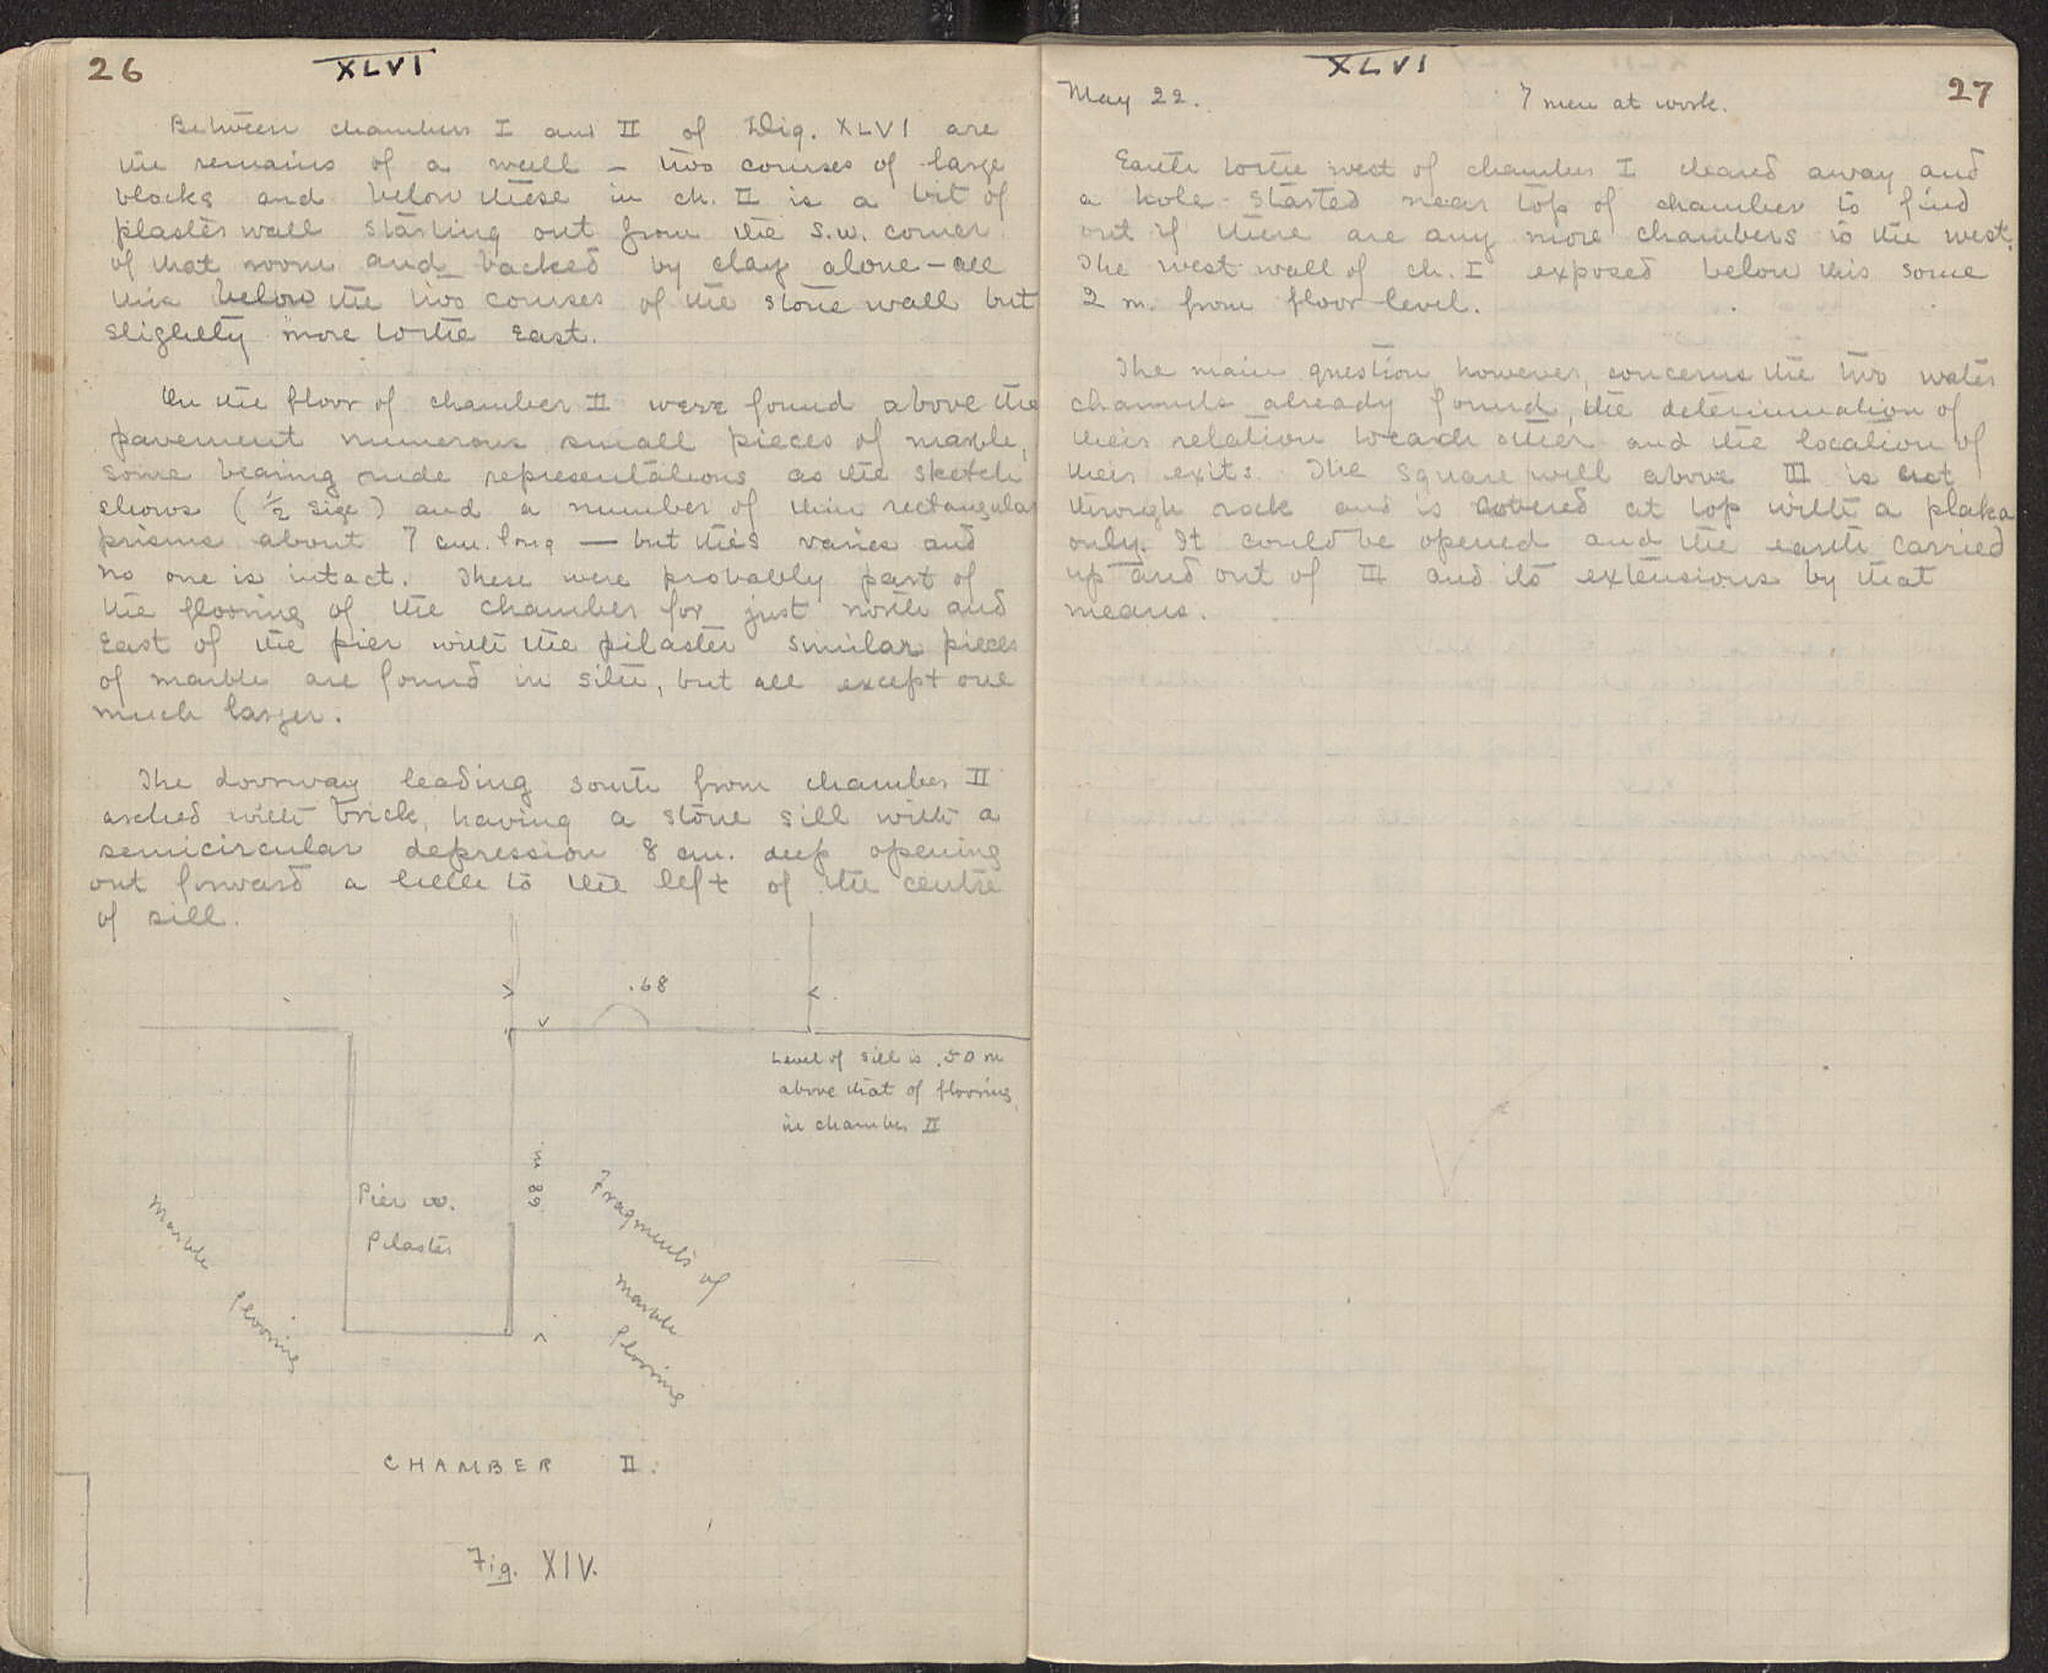 26
XLVI
Between chambers I and II of Dig. XLVI are
the remains of a wall – two courses of large
blocks and below these in ch. II is a bit of
plaster wall starting out from the S.W. corner
of that room and backed by clay alone – all
this below the two courses of the stone wall but
slightly more to the East.
On the floor of chamber II were found above the
pavement numerous small pieces of marble,
some bearing rude representations as the sketch
shows (1/2 size) and a number of thin rectangular
prisms about 7 cm. long — but this varies and
no one is intact. These were probably part of
the flooring of the chamber for just north and
East of the pier with the pilaster similar pieces
of marble are found in situ, but all except one
much larger.
The doorway leading south from chamber II
arched with brick, having a stone sill with a
semicircular depression 8 cm. deep opening
out forward a little to the left of the centre
of sill.
.68
Level of sill is .50 m
above that of flooring
in chamber II
Pier w.
Pilaster
.68 m
Marble
Flooring
Fragments of
Marble
Flooring
CHAMBER II.
Fig. XIV.
XLVI
27
May 22. 7 men at work.
Earth to the west of chamber I cleared away and
a hole started near top of chamber to find
out if there are any more chambers to the west.
The west wall of ch. I exposed below this some
2 m. from floor level.
The main question however, concerns the two water
channels already found, the determination of
their relation to each other and the location of
their exits. The square well above III is cut
through rock and is covered at top with a plaka
only. It could be opened and the earth carried
up and out of III and its extensions by that
means.